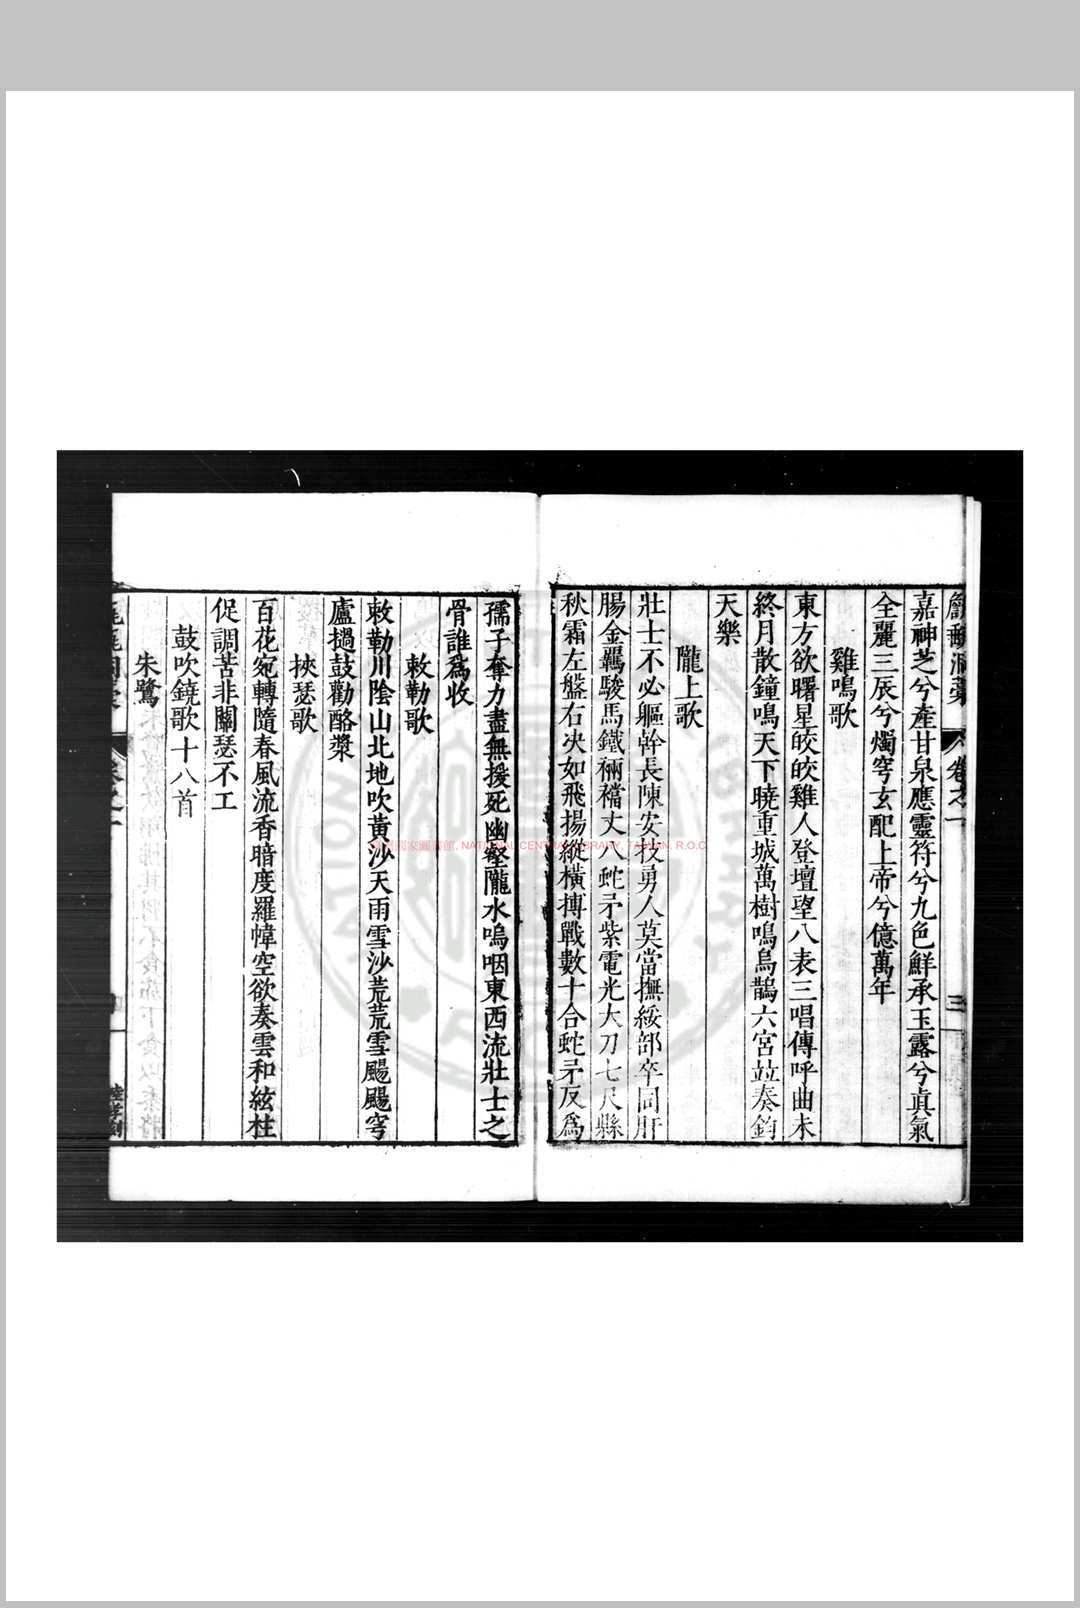 嘉神芝兮產甘泉應靈符兮九色鮮承玉露兮真氣
全麗三辰兮燭穹玄配上帝兮億萬年
雞鳴歌
東方欲曙星皎皎雞人登壇望八表三唱傳呼曲未
終月散鐘鳴天下曉重城萬樹鳴烏鵲六宮竝奏鈞
天樂
隴上歌
壯士不必軀幹長陳安技勇人莫當撫綏部卒同肝
腸金羈駿馬鐵裲襠丈八蛇矛紫電光大刀七尺縣
秋霜左盤右決如飛揚縱橫搏戰數十合蛇矛反爲
孺子奪力盡無援死幽壑隴水嗚咽東西流壯士之
骨誰爲收
敕勒歌
敕勒川陰山北地吹黃沙天雨雪沙荒荒雪颺颺穹
廬撾鼓勸酪漿
挾瑟歌
百花宛轉隨春風流香暗度羅幃空欲奏雲和絃柱
促調苦非關瑟不工
鼓吹鐃歌十八首
朱鷺
卷之一
三
四
NATIONAL CENTRAL LIBRARY, TAIWAN, R.O.C